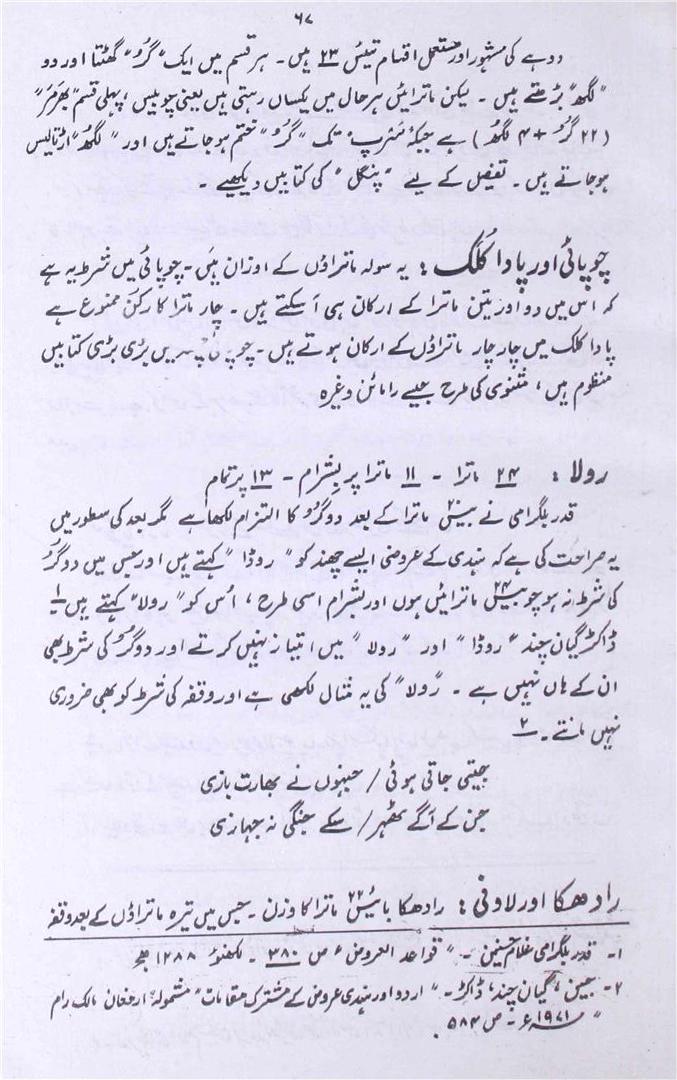 ۶۷
دوہے کی مشہور اور مستعمل اقسام تیئس ۲۳ ہیں۔ ہر قسم میں ایک "گُرُو" گھٹتا اور دو
"لگھ" بڑھتے ہیں۔ لیکن ماترائیں ہر حال میں یکساں رہتی ہیں یعنی چوبیس، پہلی قسم "بھرمر"
(۲۲ گُرُو + ۴ لگھُ) ہے جبکہ "سرپ" تک "گُرُو" ختم ہو جاتے ہیں اور "لگھُ" اڑتالیس
ہو جاتے ہیں۔ تفصیل کے لیے "پنگل" کی کتابیں دیکھیے۔
چوپائی اور پادا کُلک: یہ سولہ ماتراؤں کے اوزان ہیں۔ چوپائی میں شرط یہ ہے
کہ اس میں دو اور تین ماترا کے ارکان ہی آ سکتے ہیں۔ چار ماترا کا رکن ممنوع ہے
پادا کلک میں چار چار ماتراؤں کے ارکان ہوتے ہیں۔ چوپائی میں بڑی بڑی کتابیں
منظوم ہیں، مثنوی کی طرح جیسے رامائن وغیرہ
رولا: ۲۴ ماترا۔ ۱۱ ماترا پر بشرام۔ ۱۳ پر تمام
قدر بلگرامی نے بیس ۲۰ ماترا کے بعد دو گُرُو کا التزام لکھا ہے مگر بعد کی سطور میں
یہ صراحت کی ہے کہ ہندی کے عروضی ایسے چھند کو "روڈا" کہتے ہیں اور جس میں دو گُرُو
کی شرط نہ ہو چوبیس ۲۴ ماترائیں ہوں اور بشرام اسی طرح، اُس کو "رولا" کہتے ہیں ۱؎
ڈاکٹر گیان چند "روڈا" اور "رولا" میں امتیاز نہیں کرتے اور دو گُرُو کی شرط بھی
ان کے ہاں نہیں ہے۔ "رولا" کی یہ مثال لکھی ہے اور وقفہ کی شرط کو بھی ضروری
نہیں مانتے۔ ۲؎
جیتی جاتی ہوئی / جنہوں نے بھارت بازی
جن کے آگے ٹھہر / سکے جنگی نہ جہازی
رادھکا اور لاونی: رادھکا بائیس ۲۲ ماترا کا وزن۔ جس میں تیرہ ماتراؤں کے بعد وقفہ
۱۔ قدر بلگرامی غلام حسنین۔ "قواعد العروض" ص ۳۸۰۔ لکھنؤ ۱۲۸۸ھ
۲۔ جین، گیان چند، ڈاکٹر۔ "اردو اور ہندی عروض کے مشترک مقامات" مشمولہ: ارمغان مالک رام
" ۱۹۷۱ء۔ ص ۵۸۴۔